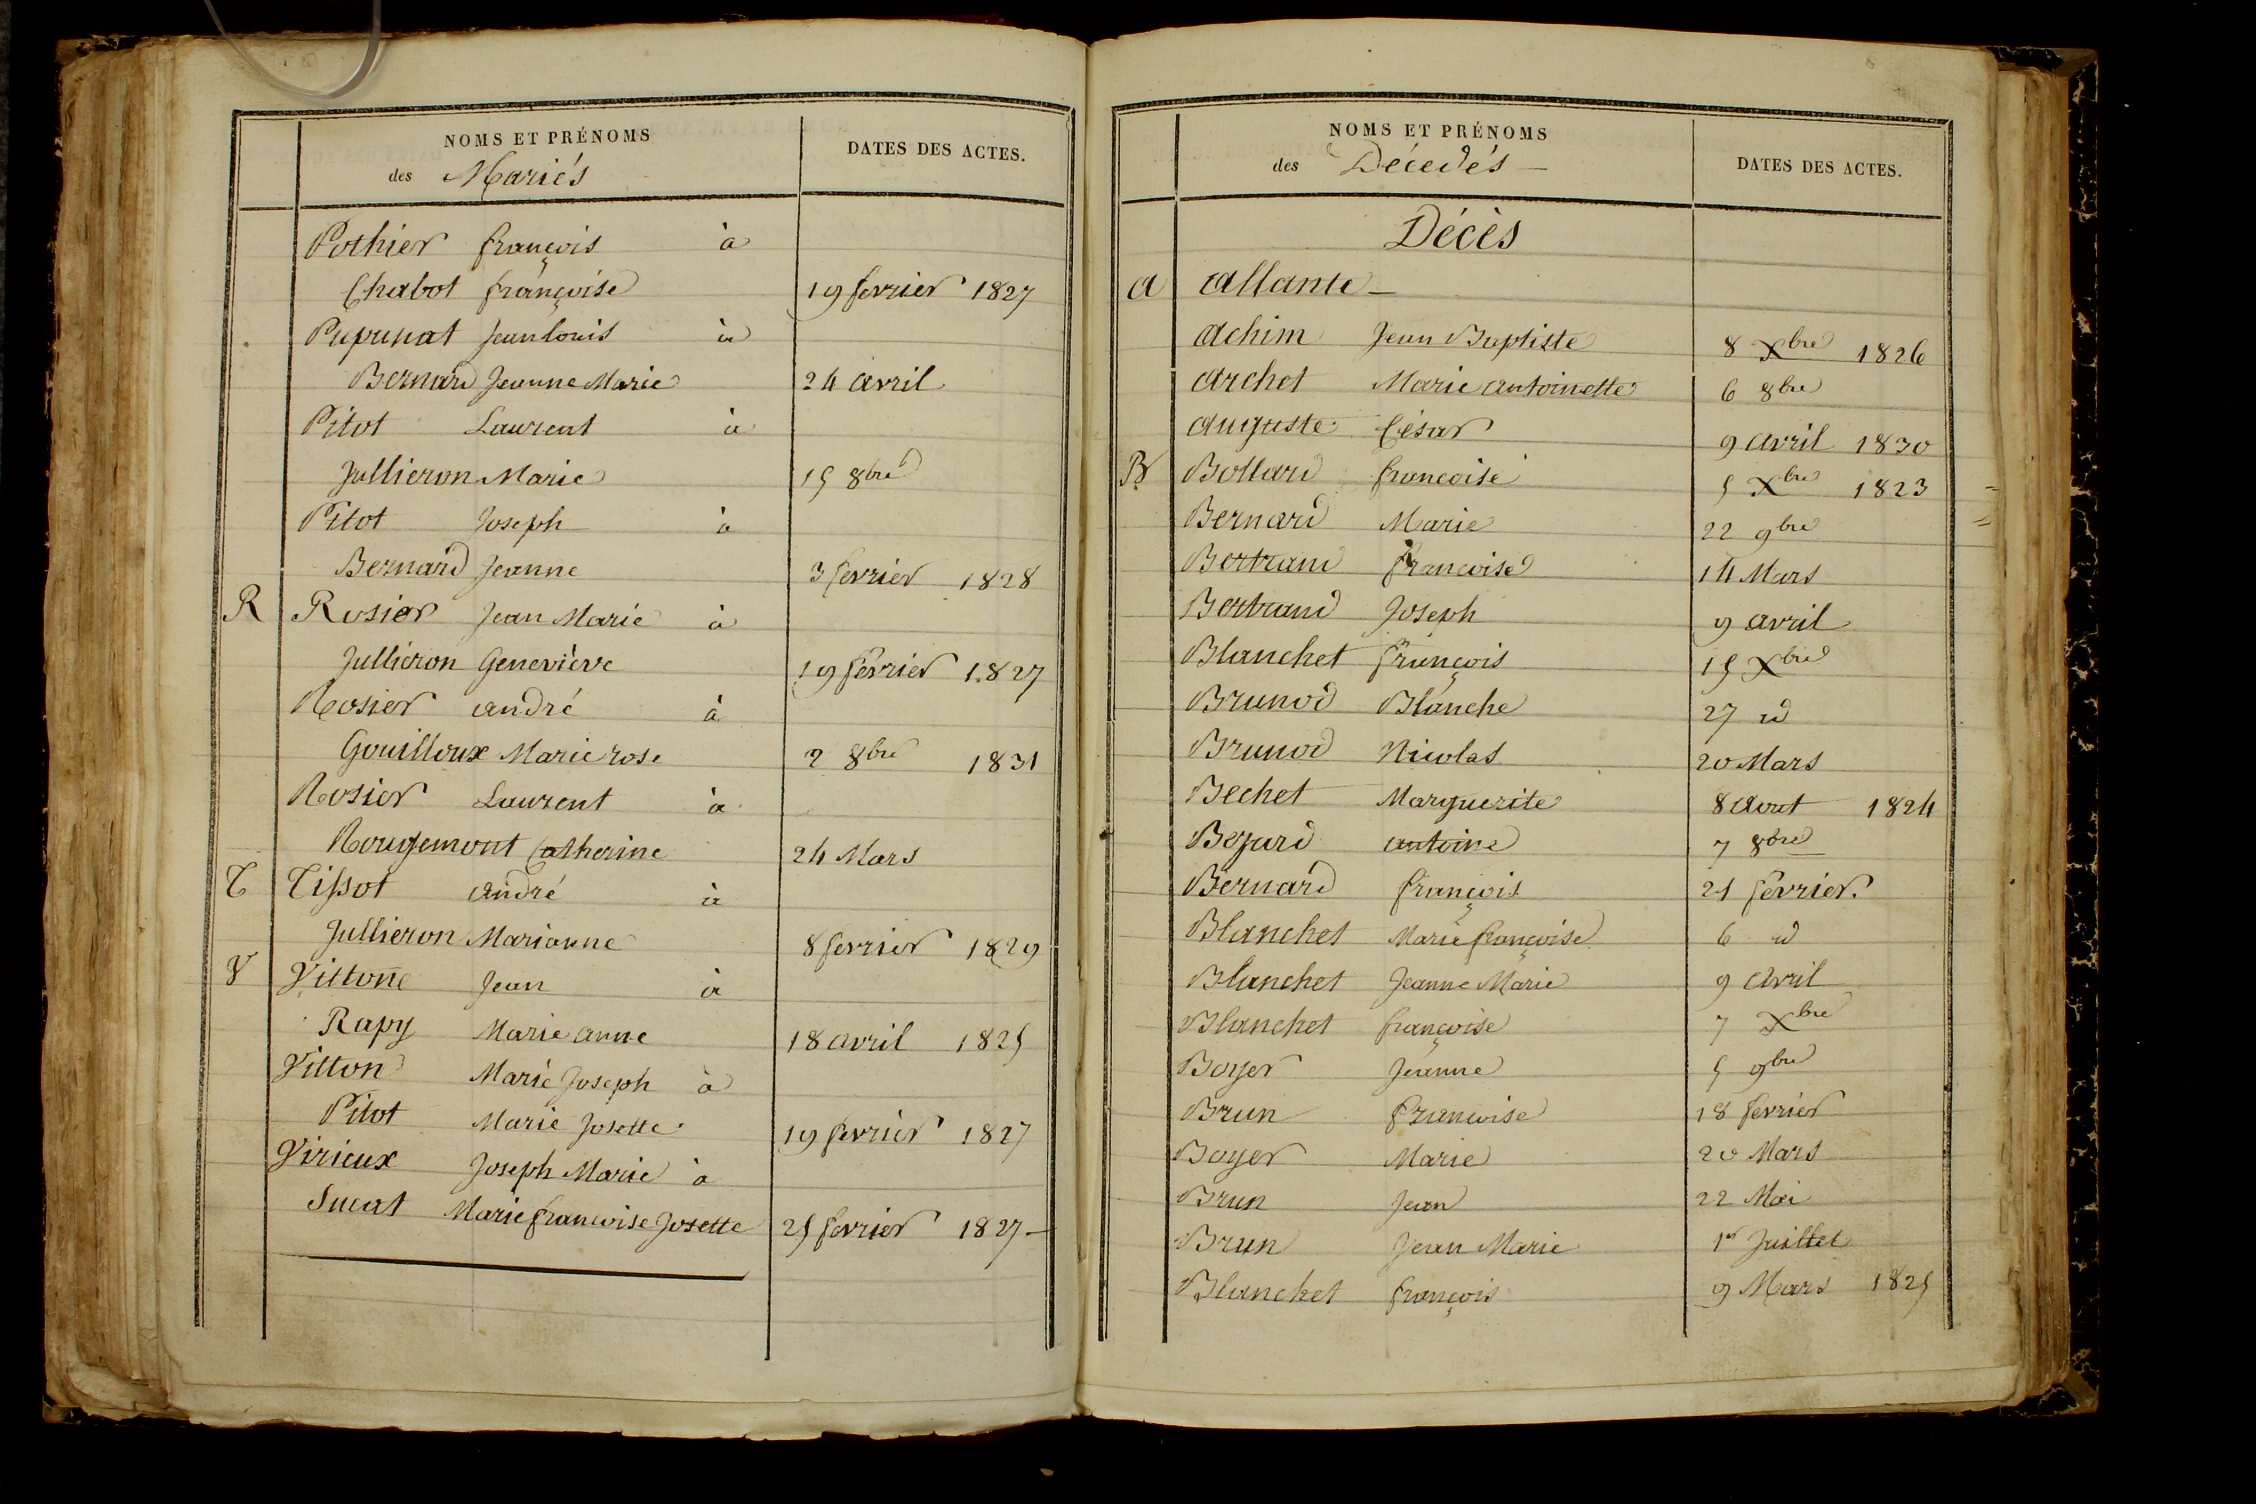 NOMS ET PRÉNOMS
des Mariés
DATES DES ACTES.
Pothier françois à
Chabot françoise 19 fevrier 1827
Pupunat Jean louis à
Bernard Jeanne Marie 24 avril
Pitot Laurent à
Jullieron Marie 15 8bre
Pitot Joseph à
Bernard Jeanne 3 fevrier 1828
R Rosier Jean Marie à
Jullieron Geneviève 19 février 1827
Rosier andré à
Gouilloux Marie rose 2 8bre 1831
Rosier Laurent à
Rougemont Catherine 24 Mars
T Tissot andré à
Jullieron Marianne 8 fevrier 1829
V Vittone Jean à
Rapy Marie anne 18 avril 1825
Vitton Marie Joseph à
Pitot Marie Josette 19 fevrier 1827
Virieux Joseph Marie à
Sucat Marie francoise Josette 25 fevrier 1827
NOMS ET PRÉNOMS
des Décedés
DATES DES ACTES.
Décès
a allante
achim Jean Baptiste 8 Xbre 1826
archet Marie antoinette 6 8bre
auguste César 9 avril 1830
B Bollard francoise 5 Xbre 1823
Bernard Marie 22 9bre
Bertrand francoise 14 Mars
Bertrand Joseph 9 avril
Blanchet françois 15 Xbre
Brunod Blanche 27 id
Brunod Nicolas 20 Mars
Bechet Marguerite 8 aout 1824
Bejard antoine 7 8bre
Bernard françois 21 février.
Blanchet Marie françoise 6 id
Blanchet Jeanne Marie 9 avril
Blanchet françoise 7 Xbre
Boyer Jeanne 5 9bre
Brun francoise 18 fevrier
Boyer Marie 20 Mars
Brun Jean 22 Mai
Brun Jean Marie 1er Juillet
Blanchet françois 9 Mars 1825